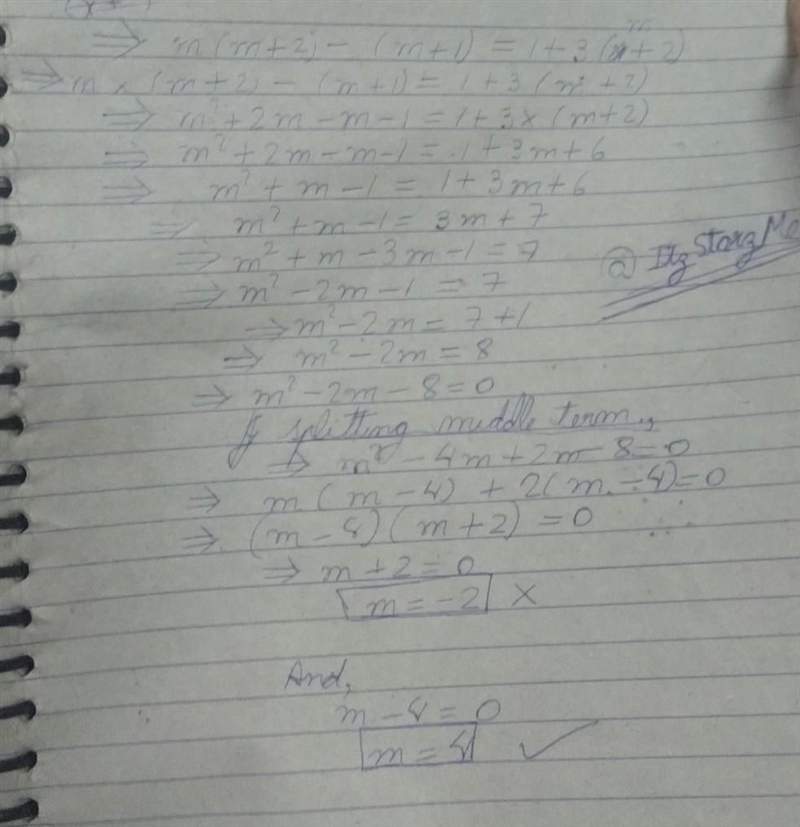 ⇒ m(m+2) - (m+1) = 1+3(m+2)
⇒ m × (m+2) - (m+1) = 1+3(m+2)
⇒ m² + 2m - m - 1 = 1+3×(m+2)
⇒ m² + 2m - m - 1 = 1+3m+6
⇒ m² + m - 1 = 1+3m+6
⇒ m² + m - 1 = 3m+7
⇒ m² + m - 3m - 1 = 7
@ItzStarzMe
⇒ m² - 2m - 1 = 7
⇒ m² - 2m = 7+1
⇒ m² - 2m = 8
⇒ m² - 2m - 8 = 0
splitting middle term,
⇒ m² - 4m + 2m - 8 = 0
⇒ m(m-4) + 2(m-4) = 0
⇒ (m-4)(m+2) = 0
⇒ m+2 = 0
m = -2 ×
And,
m-4 = 0
m = 4 ✓